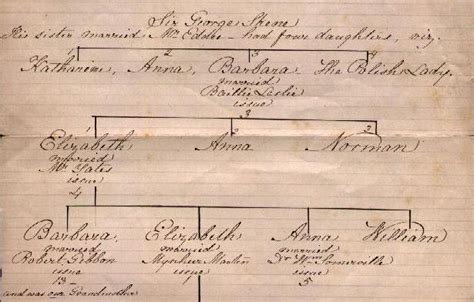 Sir George Skene
His sister married Mr. Eddie - had four daughters, viz.
1 2 3 4
Katharine, Anna, Barbara The Polish Lady.
married
Baillie Leslie
issue
3
1 2 3
Elizabeth Anna Norman
married
Mr. Yates
issue
4
Barbara, Elizabeth Anna William
married married married
Robert Gibbon Martin Dr. Wm. Somerville
issue issue issue
13 5
and was our Grandmother